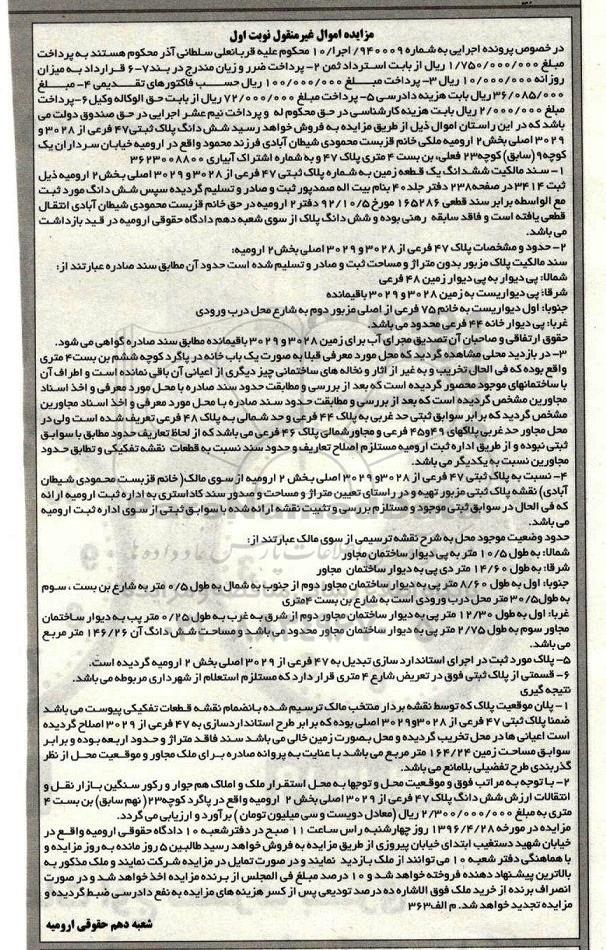 مزایده اموال غیرمنقول نوبت اول
در خصوص پرونده اجرایی به شماره ۹۴۰۰۰۹/اجرا/۱۰ محکوم علیه قربانعلی سلطانی آذر محکوم هستند به پرداخت
مبلغ ۱/۷۵۰/۰۰۰/۰۰۰ ریال از بابت استرداد ثمن ۲- پرداخت ضرر و زیان مندرج در بند ۷-۶ قرارداد به میزان
روزانه ۱۰/۰۰۰/۰۰۰ ریال ۳- پرداخت مبلغ ۱۰۰/۰۰۰/۰۰۰ ریال حسب فاکتورهای تقدیمی ۴- مبلغ
۳۶/۰۸۵/۰۰۰ ریال بابت هزینه دادرسی ۵- پرداخت مبلغ ۷۲/۰۰۰/۰۰۰ ریال از بابت حق الوکاله وکیل ۶- پرداخت
مبلغ ۲/۰۰۰/۰۰۰ ریال بابت هزینه کارشناسی در حق محکوم له و پرداخت نیم عشر اجرایی در حق صندوق دولت می
باشد که در این راستان اموال ذیل از طریق مزایده به فروش خواهد رسید شش دانگ پلاک ثبتی ۴۷ فرعی از ۳۰۲۸ و
۳۰۲۹ اصلی بخش ۲ ارومیه ملکی خانم قزبست محمودی شیطان آبادی فرزند محمود واقع در ارومیه خیابان سرداران یک
کوچه ۹ (سابق) کوچه ۲۳ فعلی، بن بست ۴ متری پلاک ۴۷ و به شماره اشتراک آبیاری ۳۶۲۳۰۰۸۸۰۰
۱- سند مالکیت ششدانگ یک قطعه زمین به شماره پلاک ثبتی ۴۷ فرعی از ۳۰۲۸ و ۳۰۲۹ اصلی بخش ۲ ارومیه ذیل
ثبت ۳۴۱۴ در صفحه ۲۳۸ دفتر جلد ۴۰ بنام بیت اله صمدپور ثبت و صادر و تسلیم گردیده سپس شش دانگ مورد ثبت
مع الواسطه برابر سند قطعی ۱۶۵۲۸۶ مورخ ۹۲/۱۰/۵ دفتر ۲ ارومیه در حق خانم قزبست محمودی شیطان آبادی انتقال
قطعی یافته است و فاقد سابقه رهنی بوده و شش دانگ پلاک از سوی شعبه دهم دادگاه حقوقی ارومیه در قید بازداشت
می باشد.
۲- حدود و مشخصات پلاک ۴۷ فرعی از ۳۰۲۸ و ۳۰۲۹ اصلی بخش ۲ ارومیه:
سند مالکیت پلاک مزبور بدون متراژ و مساحت ثبت و صادر و تسلیم شده است حدود آن مطابق سند صادره عبارتند از:
شمالا: پی دیوار به پی دیوار زمین ۴۸ فرعی
شرقا: پی دیواریست به زمین ۳۰۲۸ و ۳۰۲۹ باقیمانده
جنوبا: اول دیواریست به خانم ۷۵ فرعی از اصلی مزبور دوم به شارع محل درب ورودی
غربا: پی دیوار خانه ۴۴ فرعی محدود می باشد.
حقوق ارتفاقی و صاحبان آن تصدیق مجرای آب برای زمین ۳۰۲۸ و ۳۰۲۹ باقیمانده مطابق سند صادره گواهی می شود.
۳- در بازدید محلی مشاهده گردید که محل مورد معرفی قبلا به صورت یک باب خانه در پاگرد کوچه ششم بن بست ۴ متری
واقع بوده که فی الحال تخریب و به غیر از اثار و نخاله های ساختمانی چیز دیگری از اعیانی آن باقی نمانده است و اطراف آن
با ساختمانهای موجود محصور گردیده است که بعد از بررسی و مطابقت حدود سند صادره با محل مورد معرفی و اخذ اسناد
مجاورین مشخص گردیده است که بعد از بررسی و مطابقت حدود سند صادره با محل مورد معرفی و اخذ اسناد مجاورین
مشخص گردید که برابر سوابق ثبتی حد غربی به پلاک ۴۴ فرعی و حد شمالی به پلاک ۴۸ فرعی تعریف شده است ولی در
محل مجاور حد غربی پلاکهای ۴۹ و ۴۵ فرعی و مجاور شمالی پلاک ۴۶ فرعی می باشد که از لحاظ تعاریف حدود مطابق با سوابق
ثبتی نبوده و از طریق اداره ثبت ارومیه مستلزم اصلاح تعاریف و حدود سند نسبت به قطعات نقشه تفکیکی و تطابق حدود
مجاورین نسبت به یکدیگر می باشد.
۴- نسبت به پلاک ثبتی ۴۷ فرعی از ۳۰۲۸ و ۳۰۲۹ اصلی بخش ۲ ارومیه از سوی مالک (خانم قزبست محمودی شیطان
آبادی) نقشه پلاک ثبتی مزبور تهیه و در راستای تعیین متراژ و مساحت و صدور سند کاداستری به اداره ثبت ارومیه ارائه
که فی الحال در سوابق ثبتی موجود و مستلزم بررسی و تثبیت نقشه ارائه شده با سوابق ثبتی از سوی اداره ثبت ارومیه
می باشد.
حدود وضعیت موجود محل به شرح نقشه ترسیمی از سوی مالک عبارتند از:
شمالا: به طول ۱۰/۵ متر به پی دیوار ساختمان مجاور
شرقا: به طول ۱۴/۶۰ متر دی پی به دیوار ساختمان مجاور
جنوبا: اول به طول ۸/۶۰ متر پی به دیوار ساختمان مجاور دوم از جنوب به شمال به طول ۰/۵ متر به شارع بن بست، سوم
به طول ۳۰/۵ متر محل درب ورودی است به شارع بن بست ۴ متری
غربا: اول به طول ۱۲/۳۰ متر پی به دیوار ساختمان مجاور دوم از شرق به غرب به طول ۰/۲۵ متر پب به دیوار ساختمان
مجاور سوم به طول ۲/۷۵ متر پی به دیوار ساختمان مجاور محدود می باشد و مساحت شش دانگ آن ۱۴۶/۲۶ متر مربع
می باشد.
۵- پلاک مورد ثبت در اجرای استاندارد سازی تبدیل به ۴۷ فرعی از ۳۰۲۹ اصلی بخش ۲ ارومیه گردیده است.
۶- قسمتی از پلاک ثبتی فوق در تعریض شارع ۴ متری قرار دارد که مستلزم استعلام از شهرداری مربوطه می باشد.
نتیجه گیری
۱- پلان موقعیت پلاک که توسط نقشه بردار منتخب مالک ترسیم شده بانضمام نقشه قطعات تفکیکی پیوست می باشد
ضمنا پلاک ثبتی ۴۷ فرعی از ۳۰۲۸ و ۳۰۲۹ اصلی بوده که برابر طرح استانداردسازی به ۴۷ فرعی از ۳۰۲۹ اصلاح گردیده
است اعیانی ها در محل تخریب گردیده و محل بصورت زمین خالی می باشد سند فاقد متراژ و حدود اربعه بوده و برابر
سوابق مساحت زمین ۱۶۴/۲۴ متر مربع می باشد با عنایت به پروانه صادره برای ملک مجاور و موقعیت محل از نظر
گذربندی طرح تفضیلی بلامانع می باشد.
۲- با توجه به مراتب فوق و موقعیت محل و توجها به محل استقرار ملک و املاک هم جوار و رکور سنگین بازار نقل و
انتقالات ارزش شش دانگ پلاک ۴۷ فرعی از ۳۰۲۹ اصلی بخش ۲ ارومیه واقع در پاگرد کوچه ۲۳ (نهم سابق) بن بست ۴
متری به مبلغ ۲/۳۰۰/۰۰۰/۰۰۰ ریال (معادل دویست و سی میلیون تومان) برآورد و ارزیابی می گردد.
مزایده در مورخه ۱۳۹۶/۴/۲۸ روز چهارشنبه راس ساعت ۱۱ صبح در دفتر شعبه ۱۰ دادگاه حقوقی ارومیه واقع در
خیابان شهید دستغیب ابتدای خیابان پیروزی از طریق مزایده به فروش خواهد رسید طالبین ۵ روز مانده به روز مزایده و
با هماهنگی دفتر شعبه ۱۰ می توانند از ملک بازدید نمایند و در صورت تمایل در مزایده شرکت نمایند و ملک مذکور به
بالاترین پیشنهاد دهنده فروخته خواهد شد و ۱۰ درصد مبلغ فی المجلس از برنده مزایده اخذ خواهد شد و در صورت
انصراف برنده از خرید ملک فوق الاشاره ده درصد تودیعی پس از کسر هزینه های مزایده به نفع دادرسی ضبط گردیده و
مزایده تجدید خواهد شد. م الف ۳۶۳
شعبه دهم حقوقی ارومیه